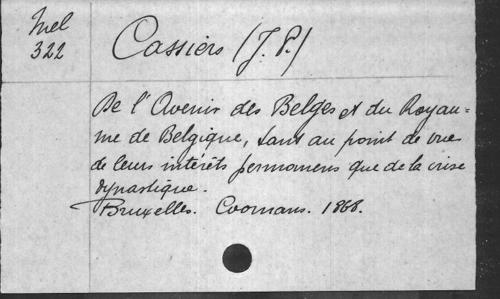 Mel
322
Cassiers (J. P.)
De l'Avenir des Belges et du Royau=
me de Belgique, tant au point de vue
de leurs intérêts permanens que de la crise
dynastique.
Bruxelles. Coomans. 1868.